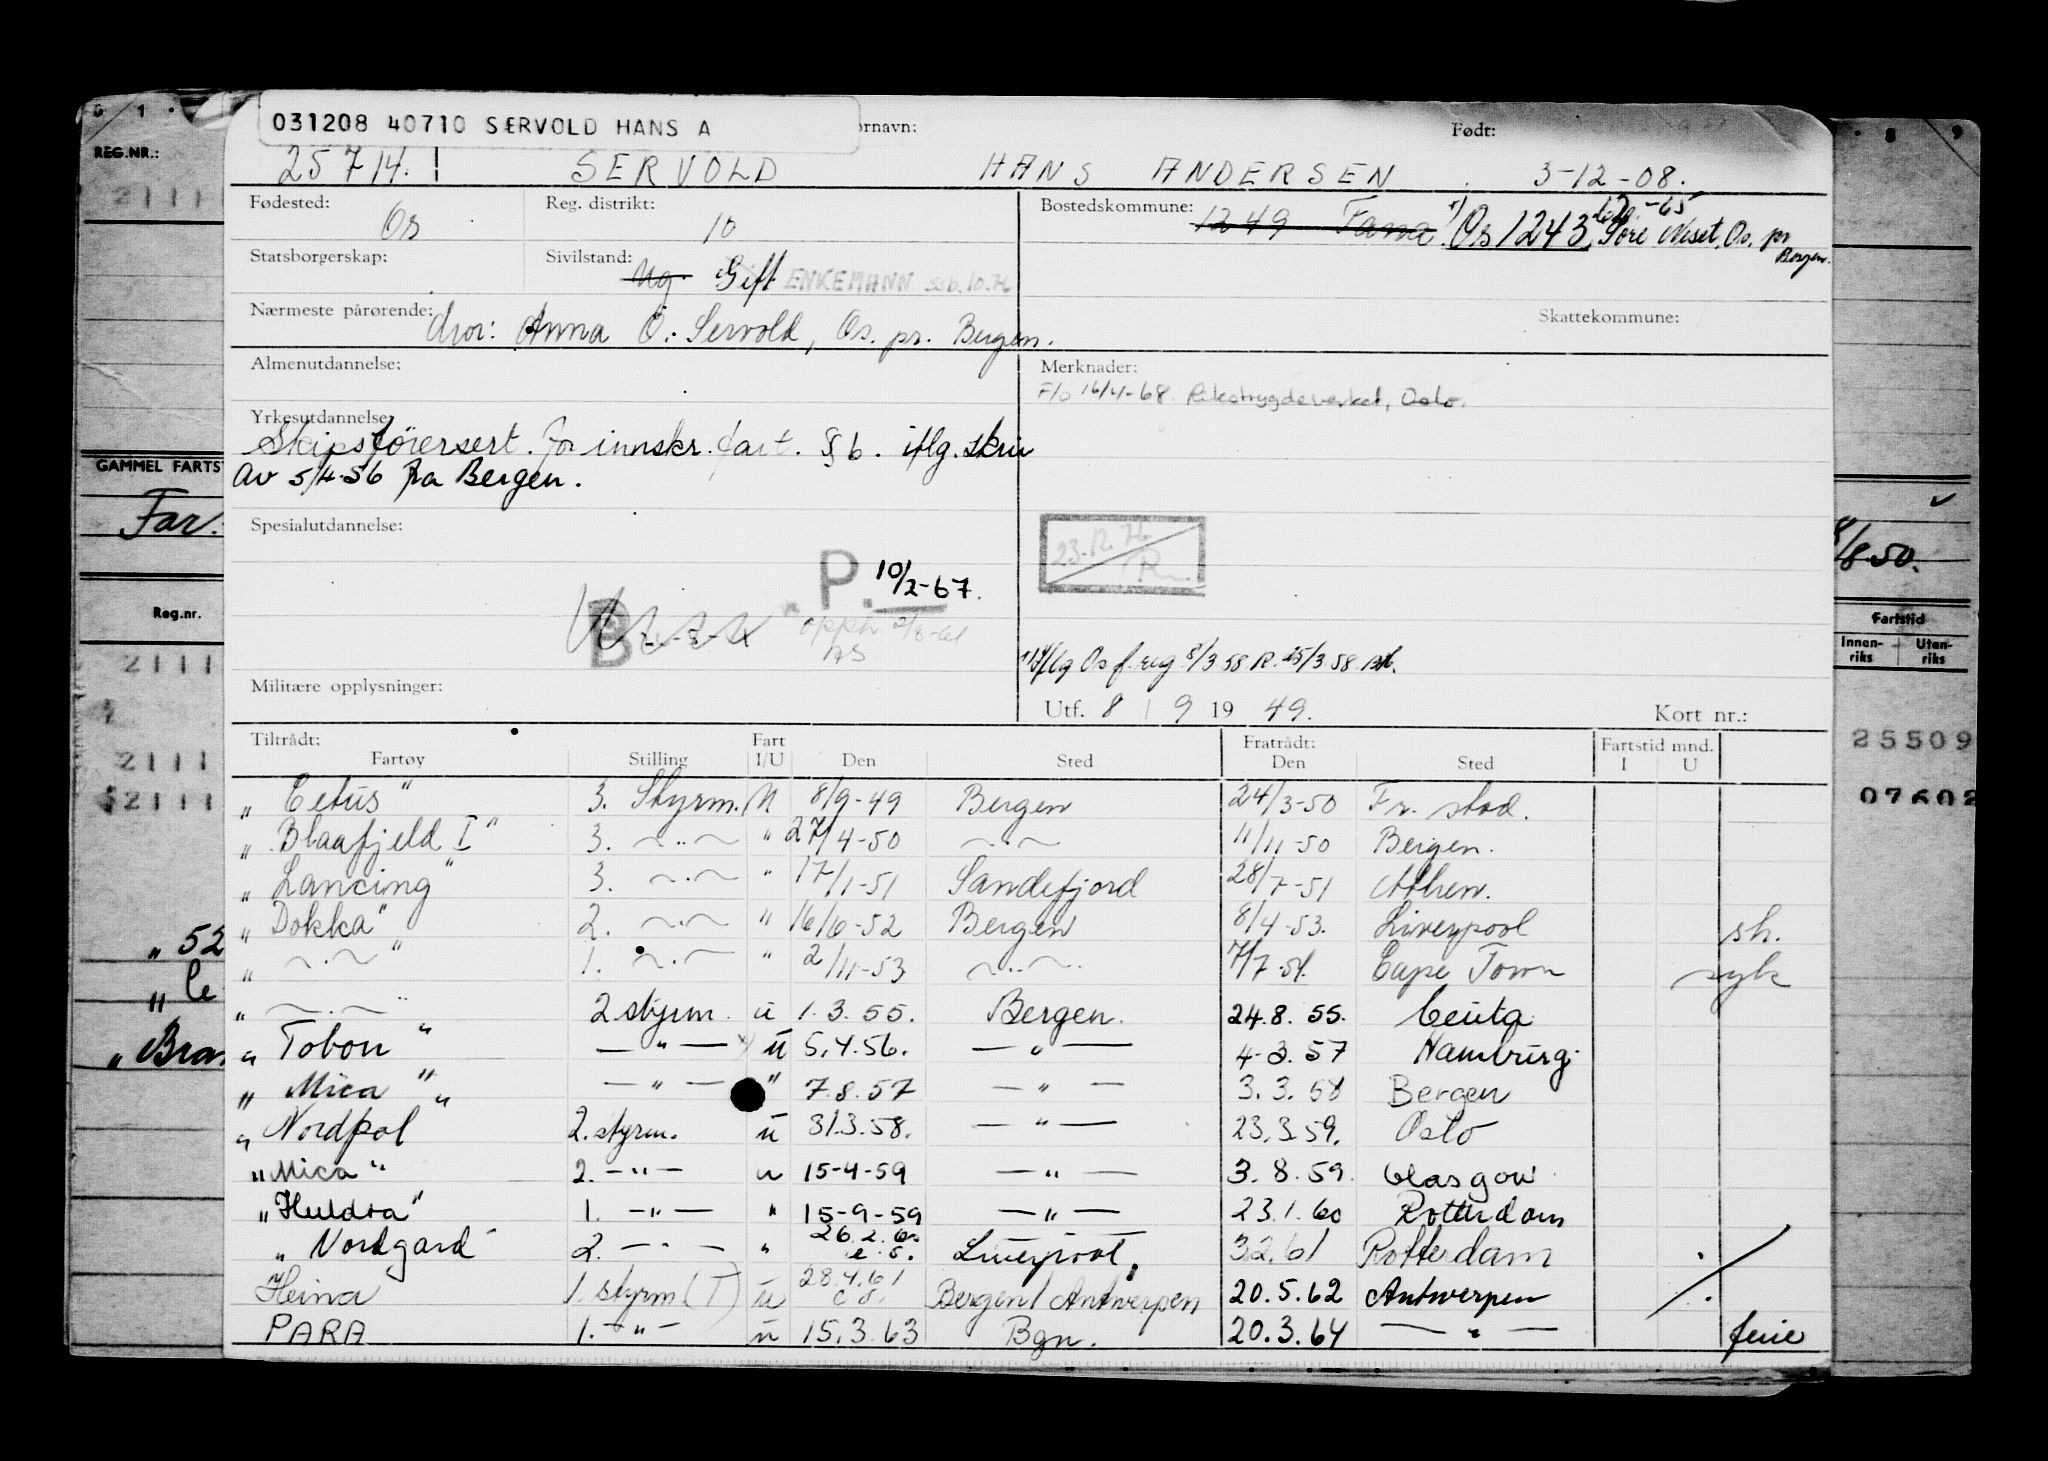 031208 40710 SERVOLD HANS A
ornavn: Født:
25714. SERVOLD HANS ANDERSEN 3-12-08.
REG.NR.:
Fødested: Os
Reg. distrikt: 10
Bostedskommune: 1249 Fana 1) Os 1243 Søre Neset, Os, pr Bergen.
Statsborgerskap:
Sivilstand: Ug. Gift ENKEMANN ssb. 10.76
Nærmeste pårørende: Mor: Anna O. Servold, Os. pr. Bergen.
Skattekommune:
Almenutdannelse:
Merknader:
F/o 16/4-68. Rikstrygdeverket, Oslo.
Yrkesutdannelse:
Skipsføresert. for innskr. fart. § 6. iflg. skriv
av 5/4-56 fra Bergen.
GAMMEL FARTS
Far.
Spesialutdannelse:
23.12.76
8/8-50.
P. 10/2-67.
B
opph 2/8-61
Reg.nr.
Fartstid
Innen-riks Uten-riks
1) Iflg Os f.reg 8/3 58 R. 25/3 58
Militære opplysninger:
Utf. 8 / 9 19 49.
Kort nr.:
2111
25509
07602
Tiltrådt: Fratrådt: Fartstid mnd.
Fartøy Stilling Fart I/U Den Sted Den Sted I U
" Cetus " 3. Styrm. U 8/9-49 Bergen 24/3-50 Fr. stad.
" Blaafjeld I " 3. ~"~ " 27/4-50 ~"~ 11/11-50 Bergen.
" Lancing " 3. ~"~ " 17/1-51 Sandefjord 28/7-51 Athen.
" Dokka " 2. ~"~ " 16/6-52 Bergen 8/4-53. Liverpool sh.
" ~"~ " 1. ~"~ " 2/11-53 ~"~ 7/7-54. Cape Town syk
" ~"~ " 2 styrm. u 1.3.55. Bergen. 24.8.55. Ceuta
" Tobon " — " — u 5.4.56. — " — 4-3.57 Hamburg.
" Mica " — " — " 7.8.57 — " — 3.3.58 Bergen
" Nordpol " 2. styrm. u 31.3.58. — " — 23.3.59. Oslo
" Mica " 2. — " — u 15-4-59 — " — 3.8.59. Glasgow
" Huldra " 1. — " — " 15-9-59 — " — 23.1.60 Rotterdam
" Nordgard " 2. — " — " 26.2.60 e.o. Liverpool. 3.2.61 Rotterdam
Heina 1 styrm (T) u 28.4.61 c.o. Bergen/Antwerpen 20.5.62 Antwerpen
PARA 1. — " — u 15.3.63 Bgn. 20.3.64 — " — ferie
" 52
" Ce
" Bra